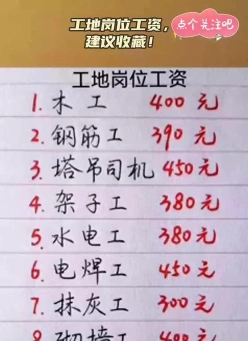 工地岗位工资,
点个关注吧
建议收藏!
工地岗位工资
1. 木工 400元
2. 钢筋工 380元
3. 塔吊司机 450元
4. 架子工 380元
5. 水电工 380元
6. 电焊工 450元
7. 抹灰工 300元
8. 砌墙工 400元